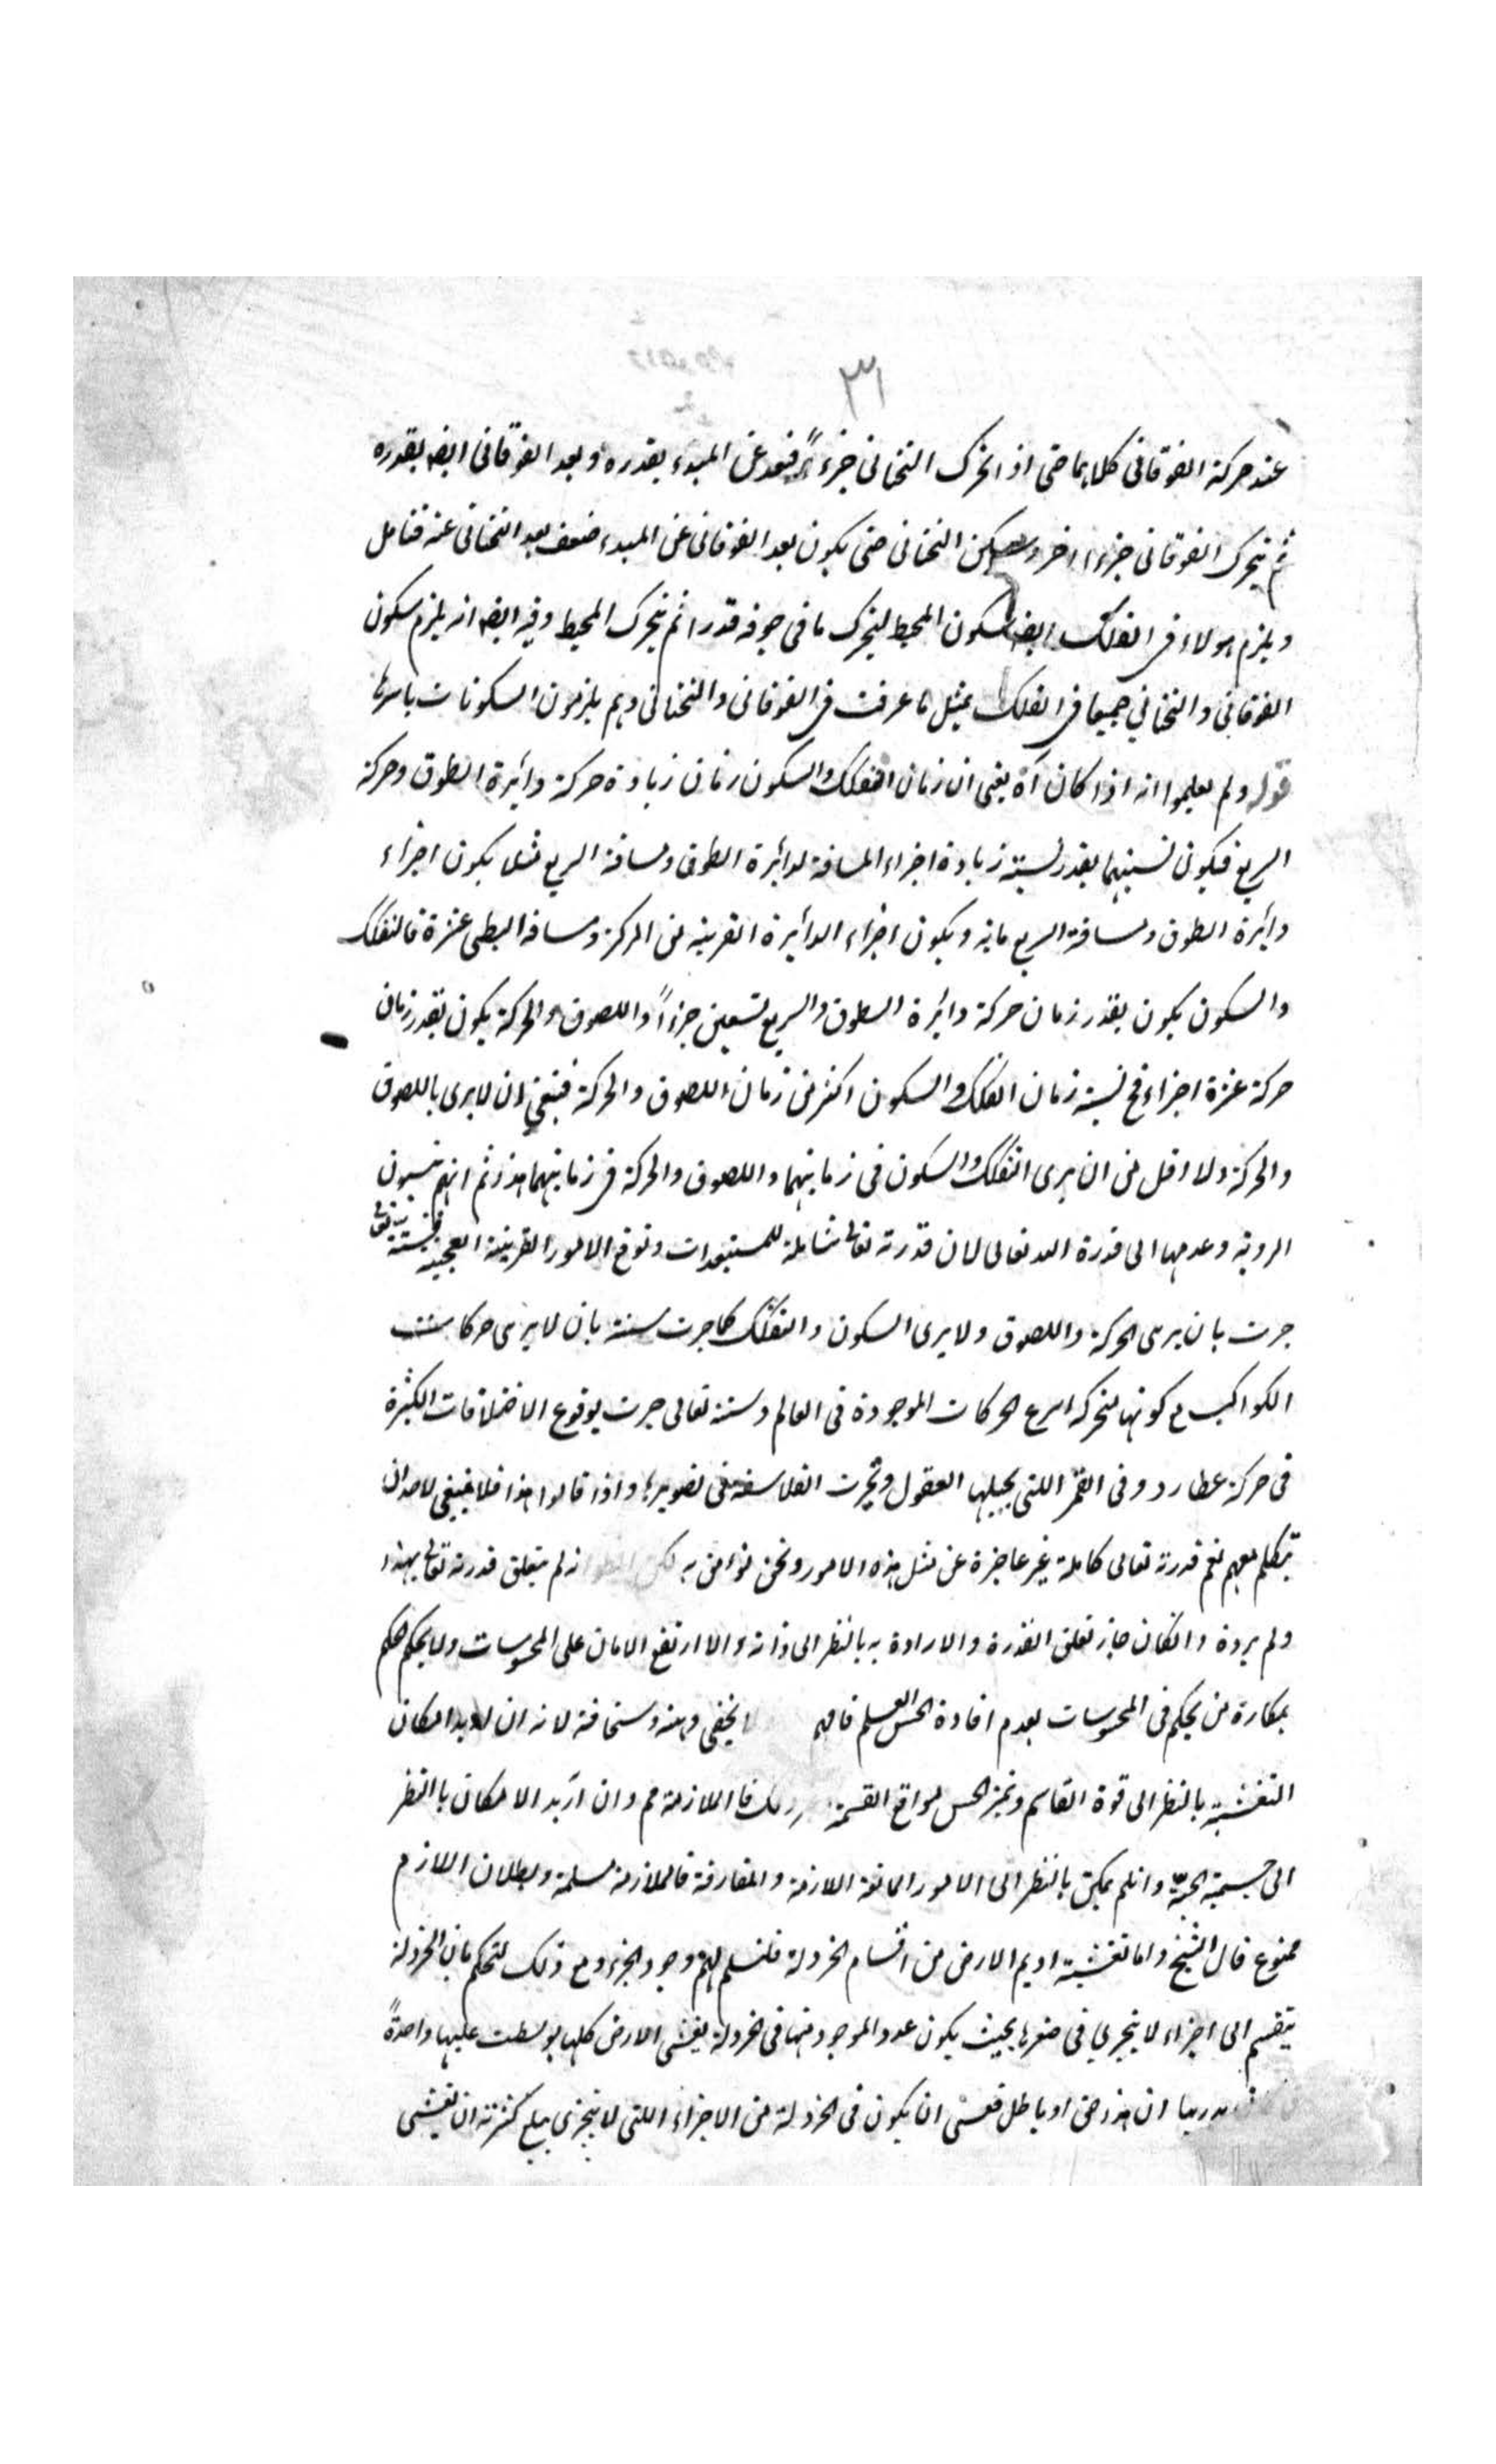 ٣١
عند حركة الفوقاني كلاهما حتى اذا تحرك التحتاني جزءاً فبعد عن المبدء بقدره وبعد الفوقاني ايضا بقدره
ثم يتحرك الفوقاني جزءا اخر ويسكن التحتاني حتى يكون بعد الفوقاني عن المبدء ضعف بعد التحتاني عنه فتامل
ويلزم هولاء في الفلك ايضا سكون المحيط ليتحرك ما في جوفه قدرا ثم يتحرك المحيط وفيه ايضا انه يلزم سكون
الفوقاني والتحتاني جميعا في الفلك بمثل ما عرفت في الفوقاني والتحتاني وهم يلزمون السكونات باسرها
قوله ولم يعلموا انه اذا كان آه يعني ان زمان التفكك والسكون زمان زيادة حركة دائرة الطوق وحركة
السريع فيكون نسبتهما بقدر نسبة زيادة اجزاء المسافة لدائرة الطوق ومسافة السريع مثلا يكون اجزاء
دائرة الطوق ومسافة السريع ماية ويكون اجزاء الدائرة القريبة من المركز ومسافة البطى عشرة فالتفكك
والسكون يكون بقدر زمان حركة دائرة الطوق والسريع تسعين جزءاً واللصوق والحركة يكون بقدر زمان
حركة عشرة اجزاء فح نسبة زمان التفكك والسكون اكثر من زمان اللصوق والحركة فينبغي ان لا يرى باللصوق
والحركة ولا اقل من ان يرى التفكك والسكون في زمانيهما واللصوق والحركة في زمانيهما هذا ثم انهم ينسبون
الروية وعدمها الى قدرة الله تعالى لان قدرته تعالى شاملة للمستبعدات وتوقع الامور الغريبة العجيبة فسنته تعالى
جرت بان يرى الحركة واللصوق ولا يرى السكون والتفكك كما جرت سنته بان لا يرى حركات
الكواكب مع كونها متحركة اسرع الحركات الموجودة في العالم وسنته تعالى جرت بوقوع الاختلافات الكثيرة
في حركة عطارد وفي القمر اللتي يحيلها العقول وتحيرت الفلاسفة في تصويرها واذا قالوا هذا فلا ينبغي لاحد ان
يتكلم معهم نعم قدرته تعالى كاملة غير عاجزة عن مثل هذه الامور ونحن نؤمن به لكن انه لم يتعلق قدرته تعالى بهذا
ولم يرده وان كان جاز تعلق القدرة والارادة به بالنظر الى ذاته والا ارتفع الامان على المحسوسات ولا يحكم حكم
بمكابرة من يحكم في المحسوسات بعدم افادة الحس العلم فافهم لا يخفى وهنه وسخافته لانه ان اريد امكان
التغشية بالنظر الى قوة القاسم وتميز الحس لمواقع القسمة فالملازمة مم وان اريد الامكان بالنظر
الى جسمية الحبة وان لم يمكن بالنظر الى الامور المانعة اللازمة والمفارقة فالملازمة مسلمة وبطلان اللازم
ممنوع قال الشيخ واما تغشية اديم الارض من اقسام الخردلة فلنسلم لهم وجود الجزء ومع ذلك لنحكم بان الخردلة
ينقسم الى اجزاء لا يتجزى في صغرها بحيث يكون عدد الموجود منها في خردلة يغشى الارض كلها لو بسطت عليها واحدةً
ان هذا حق او باطل فعسى ان يكون في الخردلة من الاجزاء اللتي لا يتجزى يبلغ كثرته ان يغشى